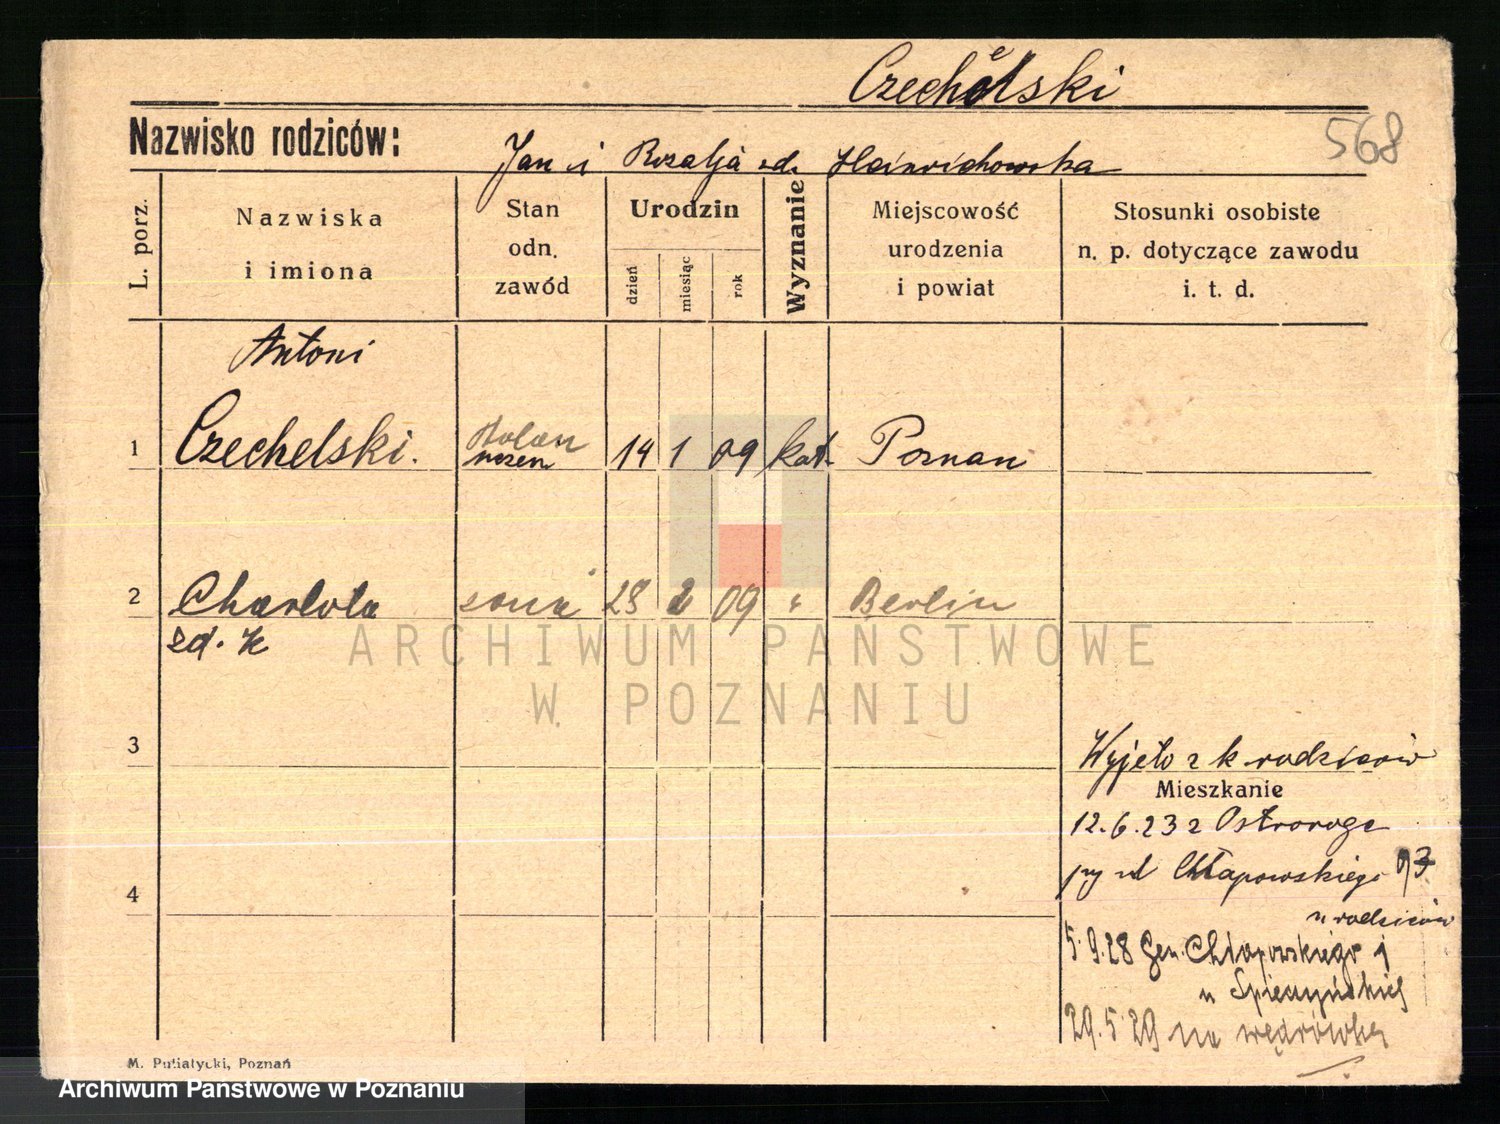 Czechelski
568
Nazwisko rodziców:
Jan i Rozalja zd. Heinrichowska
L. porz.
Nazwiska
i imiona
Stan
odn.
zawód
Urodzin
dzień
miesiąc
rok
Wyznanie
Miejscowość
urodzenia
i powiat
Stosunki osobiste
n. p. dotyczące zawodu
i. t. d.
Antoni
1 Czechelski. 14 1 09 kat. Poznan
2 Charlota 2 09 " Berlin
zd. K
3
4
Wyjęto z k rodziców
Mieszkanie
12.6.23 z Ostroroga
przy ul Chłapowskiego
u rodziców
5.9.28 Gen. Chłapowskiego
u
29.5.29 na wędrówkę
M. Putiatycki, Poznań
ARCHIWUM PAŃSTWOWE
W POZNANIU
Archiwum Państwowe w Poznaniu